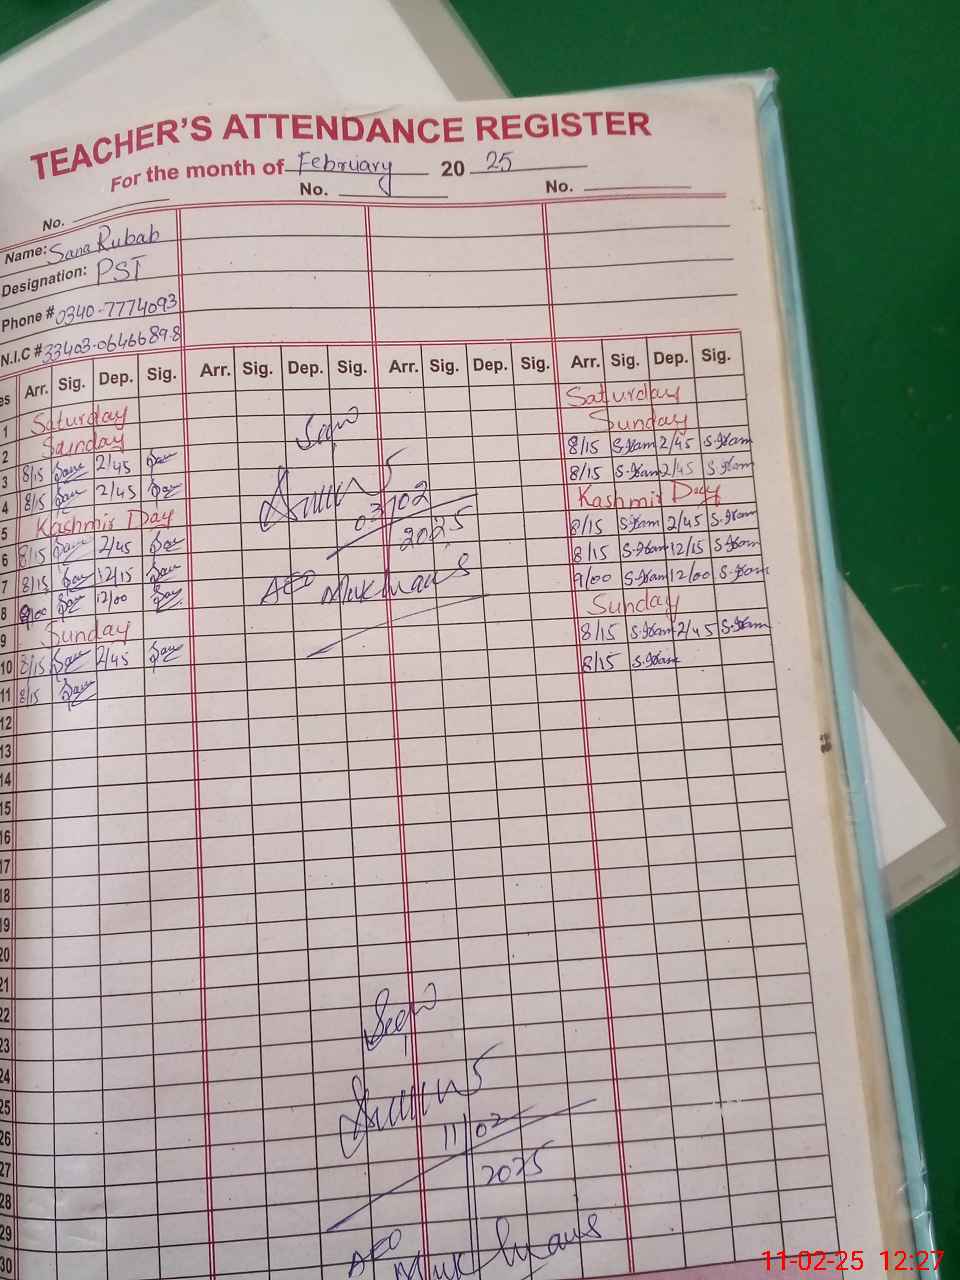 TEACHER'S ATTENDANCE REGISTER
For the month of February 2025
No. No. No.
Name: Sana Rubab
Designation: PST
Phone # 0340-7774093
N.I.C # 33403-0646689-8
es Arr. Sig. Dep. Sig. Arr. Sig. Dep. Sig. Arr. Sig. Dep. Sig. Arr. Sig. Dep. Sig.
1 Saturday Saturday
2 Sunday Seen Sunday
3 8/15 2/45 8/15 2/45
4 8/15 2/45 8/15 2/45
5 Kashmir Day 03/02 Kashmir Day
2025
6 8/15 2/45 8/15 2/45
7 8/15 12/15 AEO 8/15 12/15
8 9/00 12/00 9/00 12/00
9 Sunday Sunday
10 8/15 2/45 8/15 2/45
11 8/15 8/15
12
13
14
15
16
17
18
19
20
21
22
Seen
23
24
25
26
11/02
27
2025
28
29
AEO
30
11-02-25 12:27